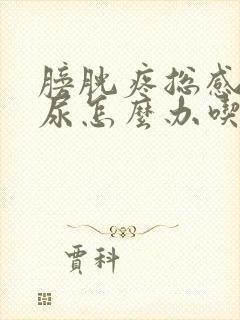 膀胱疼总感
尿怎麼办喫
贾科